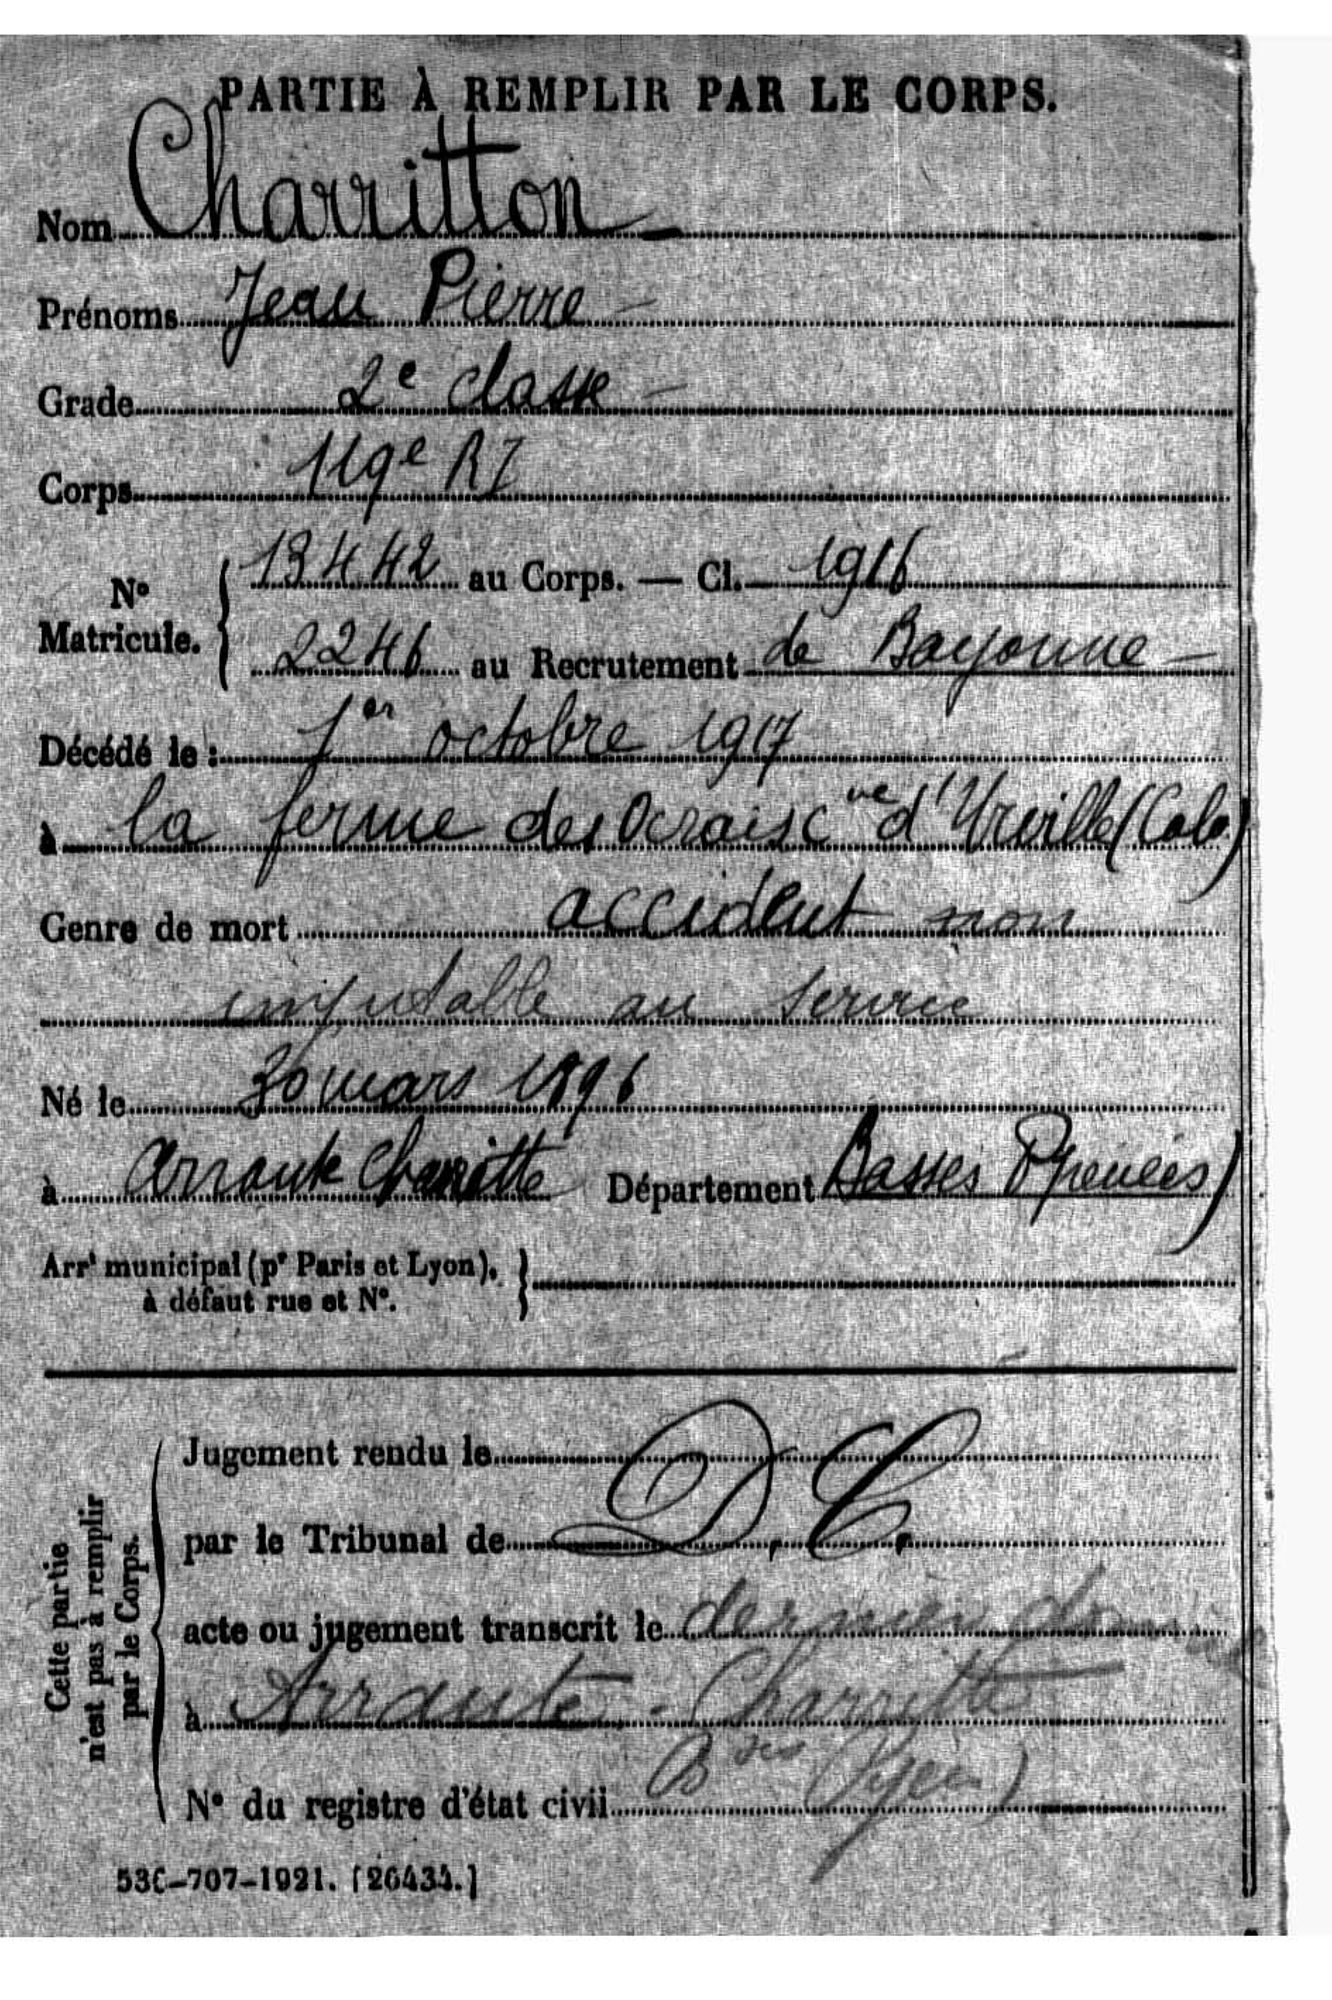 PARTIE À REMPLIR PAR LE CORPS.
Nom Charritton
Prénoms Jean Pierre
Grade 2e classe
Corps 119e RI
No Matricule. 13442 au Corps. — Cl. 1916
2246 au Recrutement de Bayonne
Décédé le : 1er octobre 1917
à la ferme des cne d'Ureville (Calv)
Genre de mort accident non
imputable au service
Né le 30 mars 1896
à Arraute Charritte Département Basses Pyrénées)
Arrt municipal (pr Paris et Lyon),
à défaut rue et N°.
Cette partie
n'est pas à remplir
par le Corps.
Jugement rendu le D. C.
par le Tribunal de
acte ou jugement transcrit le dernier
à Arraute - Charritte
Bses Pyén)
N° du registre d'état civil
536-707-1921. [26434.]